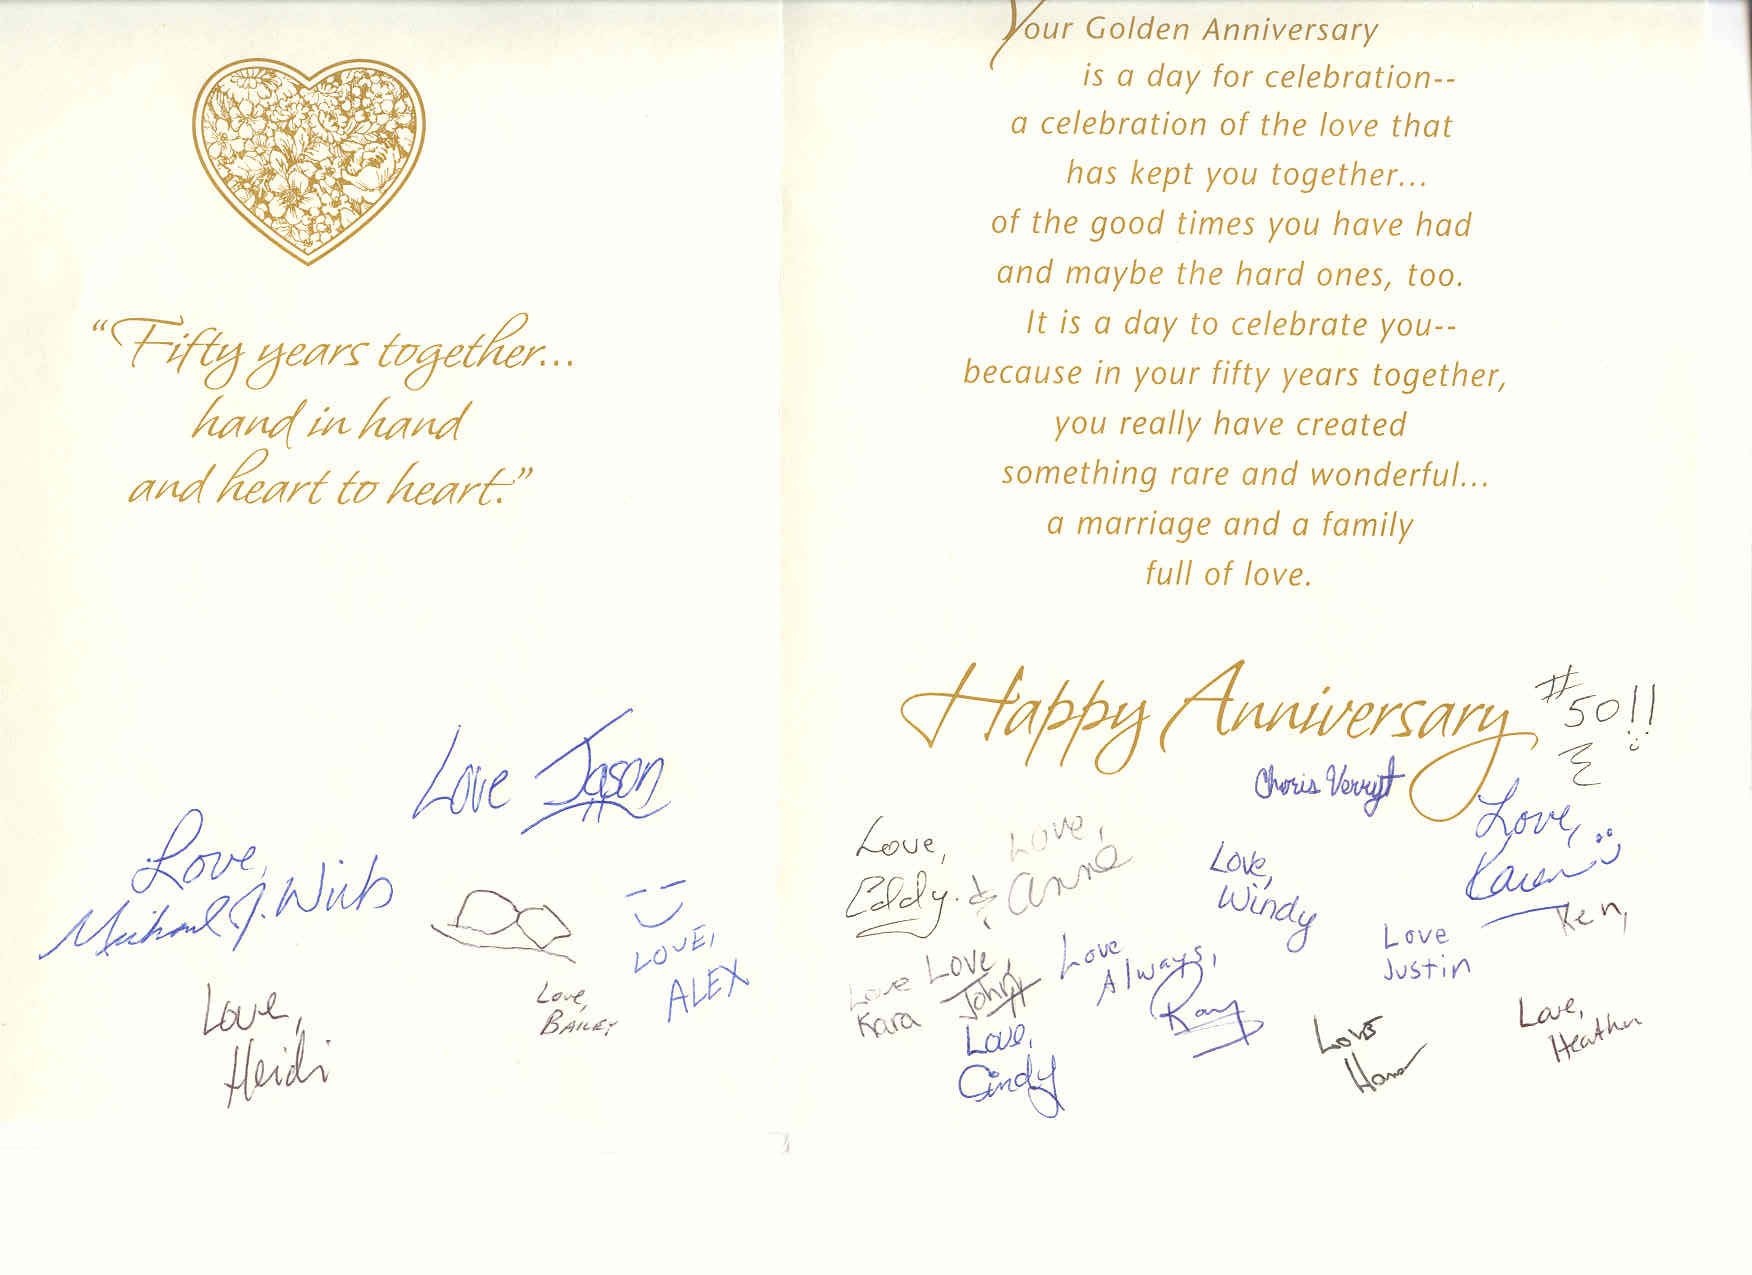 “Fifty years together...
hand in hand
and heart to heart.”
Love Jason
Love,
Michael J.
Love,
ALEX
Love,
BAILEY
Love,
Heidi
Your Golden Anniversary
is a day for celebration--
a celebration of the love that
has kept you together...
of the good times you have had
and maybe the hard ones, too.
It is a day to celebrate you--
because in your fifty years together,
you really have created
something rare and wonderful...
a marriage and a family
full of love.
Happy Anniversary
#50!!
Love,
Eddy &
Love,
Anne
Love,
Windy
Love,
Karen
Ken,
Love
Kara
Love,
John
Love
Always,
Ray
Love
Justin
Love,
Cindy
Love
Love,
Heather